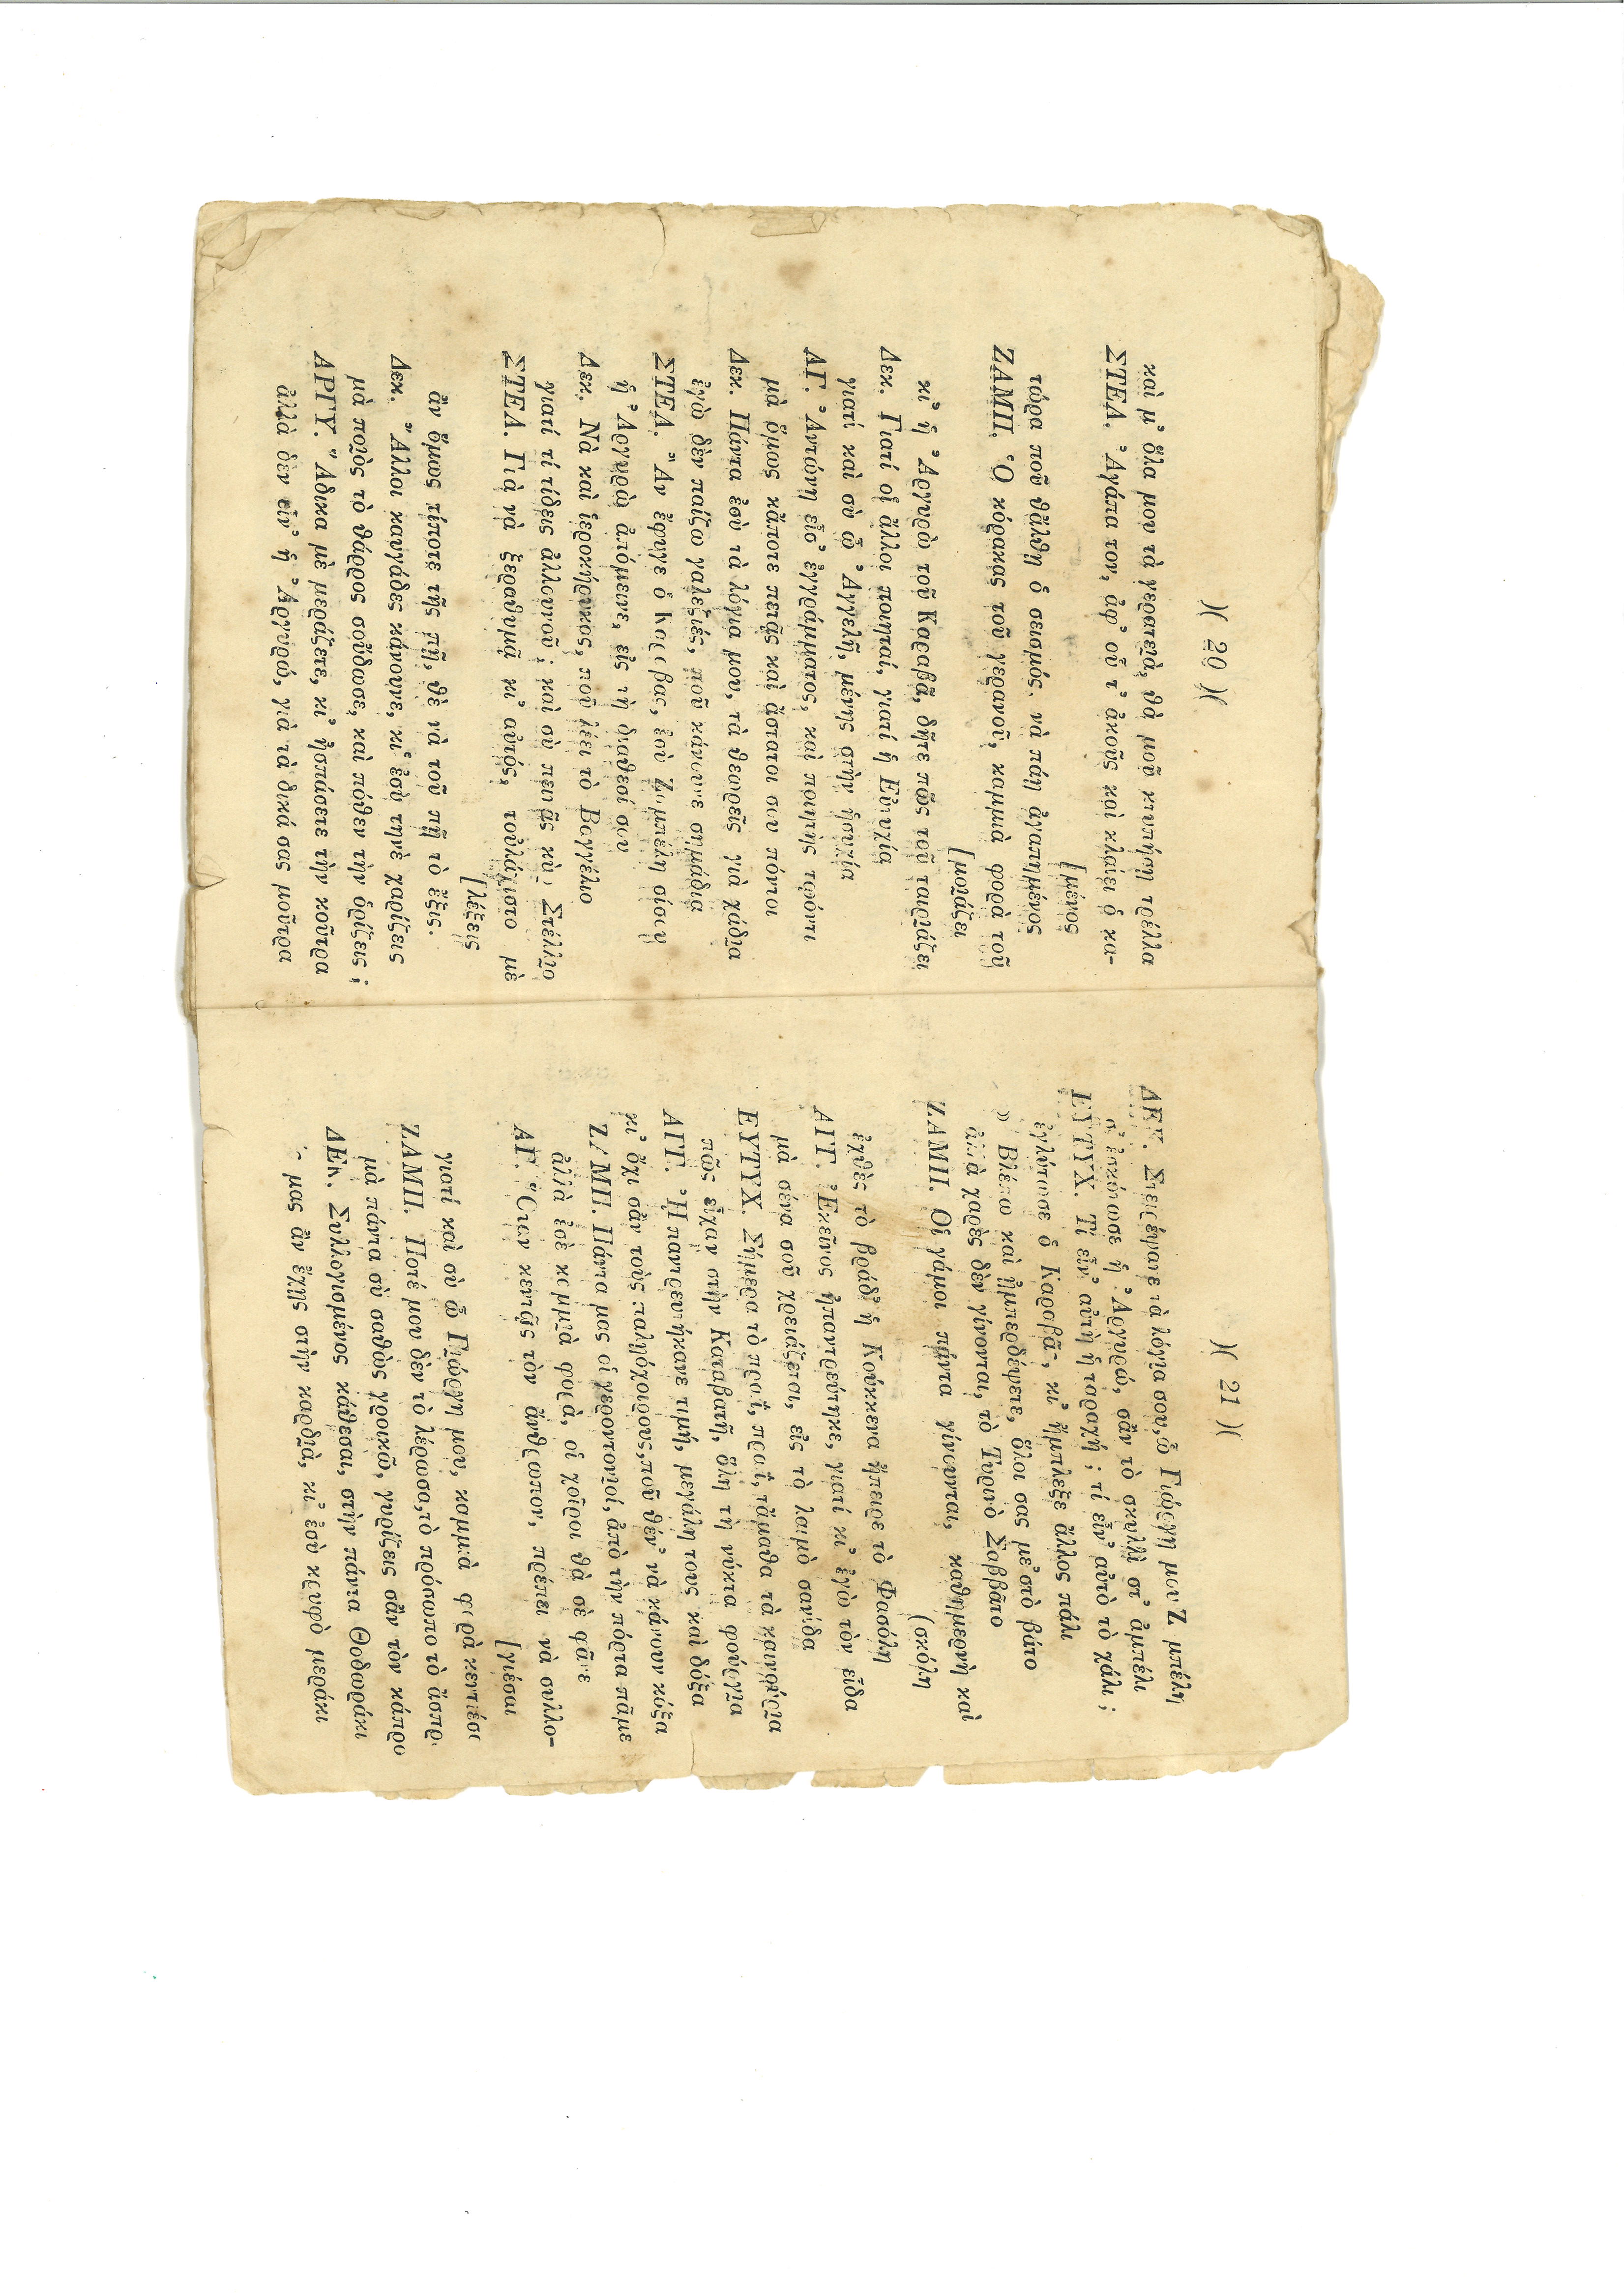 )( 20 )(
καὶ μ᾿ ὅλα μου τὰ γερατειὰ, θὰ μοῦ κτυπήσῃ τρέλλα
ΣΤΕΛ. Ἀγάπα τον, ἀφ᾿ οὗ τ᾿ ἀκοῦς καὶ κλαίει ὁ κα-
[μένος
τώρα ποῦ θἄλθῃ ὁ σεισμός. νὰ πάῃ ἀγαπημένος
ΖΑΜΠ. Ὁ κόρακας τοῦ γερανοῦ, καμμιὰ φορὰ τοῦ
[μοιάζει
κι᾿ ἡ Ἀργυρὼ τοῦ Καραβᾶ, δῆτε πῶς τοῦ ταιριάζει
Δεκ. Γιατί οἱ ἄλλοι ποιηταί, γιατί ἡ Εὐτυχία
γιατί καὶ σὺ ὦ Ἀγγελῆ, μένῃς στὴν ἡσυχία
ΑΓ. Ἀντώνη εἶσ᾿ ἐγγράμματος, καὶ ποιητὴς τῳόντι
μὰ ὅμως κἄποτε πετᾷς καὶ ἄστατοι σου πόντοι
Δεκ. Πάντα ἐσὺ τὰ λόγια μου, τὰ θεωρεῖς γιὰ χάδια
ἐγὼ δὲν παίζω γαλεζιές, ποῦ κάνουνε σημάδια
ΣΤΕΛ. Ἂν ἔφυγε ὁ Καραβας, ἐσὺ Ζαμπέλη σίσου
ἡ Ἀργυρὼ ἀπόμεινε, εἰς τὴ διαθεσί σου
Δεκ. Νὰ καὶ ἱεροκήρυκος, ποῦ λέει τὸ Βαγγέλιο
γιατί τί τίθεις ἀλλουνοῦ; καὶ σὺ πεινᾷς κὺρ Στέλλιο
ΣΤΕΛ. Γιὰ νὰ ξεραθυμᾷ κι᾿ αὐτός, τοὐλάχιστο μὲ
[λέξεις
ἂν ὅμως τίποτε τῆς πῇ, θὲ νὰ τοῦ πῇ τὸ ἕξις.
Δεκ. Ἄλλοι καυγάδες κάνουνε, κι᾿ ἐσὺ τηνὲ χαρίζεις
μὰ ποιὸς τὸ θάρρος σοὔδωσε, καὶ πόθεν τὴν ὁρίζεις;
ΑΡΓΥ. Ἄδικα μὲ μεράζετε, κι᾿ ἠσπάσετε τὴν κοῦτρα
ἀλλὰ δὲν εἶν᾿ ἡ Ἀργυρό, γιὰ τὰ δικά σας μοῦτρα
)( 21 )(
ΔΕΚ. τὰ λόγια σου, ὦ Γιώργη μου Ζ μπέλη
σ᾿ ἐσκότωσε ἡ Ἀργυρώ, σἂν τὸ σκυλλὶ στ᾿ ἀμπέλι
ΕΥΤΥΧ. Τί εἶν᾿ αὐτὴ ἡ ταραχή; τί εἶν᾿ αὐτὸ τὸ χάλι;
ἐγλύτωσε ὁ Καραβᾶς, κι᾿ ἤμπλεξε ἄλλος πάλι
» Βλέπω καὶ ἠμπερδέψετε, ὅλοι σας μέσ᾿ στὸ βάτο
ἀλλὰ χαρὲς δὲν γίνονται, τὸ Τυρινὸ Σαββᾶτο
ΖΑΜΠ. Οἱ γάμοι πάντα γίνουνται, καθημερνὴ καὶ
(σκόλη
ἐχθὲς τὸ βράδ᾿ ἡ Κούκκενα ἤπειρε τὸ Φασόλη
ΑΓΓ. Ἐκεῖνος ἠπαντρεύτηκε, γιατί κι᾿ ἐγὼ τὸν εἶδα
μὰ σένα σοῦ χρειάζεται, εἰς τὸ λαιμὸ σανίδα
ΕΥΤΥΧ. Σήμερα τὸ πρωΐ, πρωΐ, τἄμαθα τὰ καινούρια
πῶς εἶχαν στὴν Καταβατῆ, ὅλη τὴ νύκτα φούργια
ΑΓΓ. Ἠπαντρευτήκανε τιμή, μεγάλη τους καὶ δόξα
κι᾿ ὄχι σἂν τοὺς παληόχοιρους, ποῦ θέν᾿ νὰ κάνουν κόξα
ΖΑΜΠ. Πάντα μας οἱ γεροντονιοί, ἀπὸ τὴν πόρτα πᾶμε
ἀλλὰ ἐσὲ καμμιὰ φορὰ, οἱ χοῖροι θὰ σὲ φᾶνε
ΑΓ. Ὅταν κεντᾷς τὸν ἄνθρωπον, πρέπει νὰ συλλο-
[γιέσαι
γιατί καὶ σὺ ὦ Γιώργη μου, καμμιὰ φορὰ κεντιέσαι
ΖΑΜΠ. Ποτέ μου δὲν τὸ λέρωσα, τὸ πρόσωπο τὸ ἄσπρο
μὰ πάντα σὺ σαθὼς γροικῶ, γυρίζεις σἂν τὸν κάπρο
ΔΕΚ. Συλλογισμένος κάθεσαι, στὴν πάντα Θοδωράκι
μας ἂν ἔχῃς στὴν καρδιὰ, κι᾿ ἐσὺ κρυφὸ μεράκι